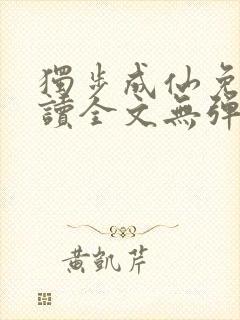 獨步成仙免
讀全文無彈
黃凱芹